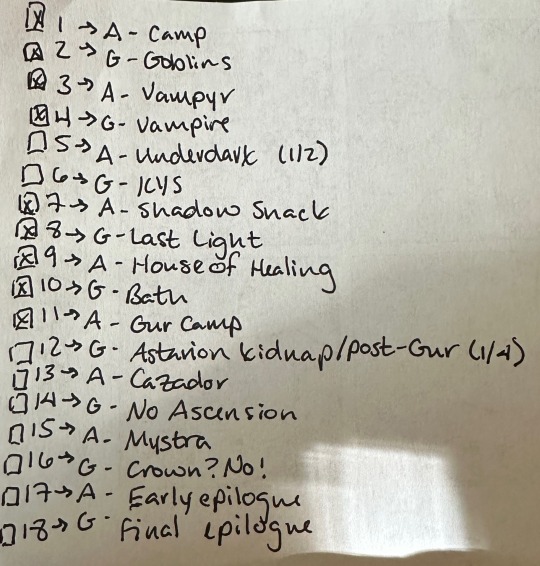 ☒ 1 → A - Camp
☒ 2 → G - Goblins
☒ 3 → A - Vampyr
☒ 4 → G - Vampire
☐ 5 → A - Underdark (1/2)
☐ 6 → G - KYS
☒ 7 → A - Shadow Snack
☒ 8 → G - Last Light
☒ 9 → A - House of Healing
☒ 10 → G - Bath
☒ 11 → A - Gur Camp
☐ 12 → G - Astarion kidnap/post-Gur (1/4)
☐ 13 → A - Cazador
☐ 14 → G - No Ascension
☐ 15 → A - Mystra
☐ 16 → G - Crown? No!
☐ 17 → A - Early epilogue
☐ 18 → G - Final epilogue